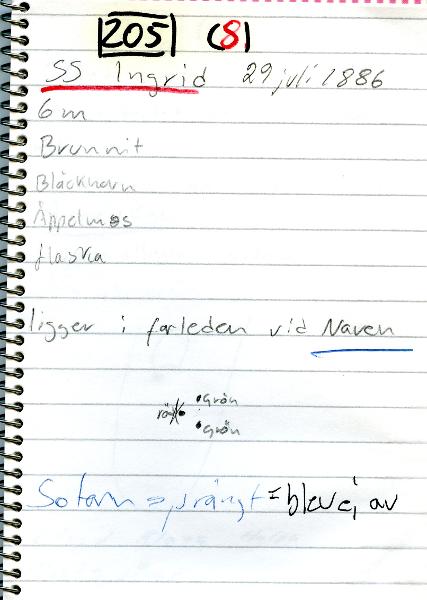 205 (8)
SS Ingrid 29 juli 1886
6 m
Brunnit
Bläckhorn
Äppelmos
flaska
ligger i farleden vid Naven
grön
grön
= blev ej av